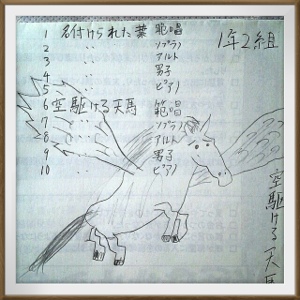 1 名付けられた葉 範唱
2 〃 ソプラノ
3 〃 アルト
4 〃 男子
5 〃 ピアノ
6 空駆ける天馬 範唱
7 〃 ソプラノ
8 〃 アルト
9 〃 男子
10 〃 ピアノ
1年2組
空駆ける天馬